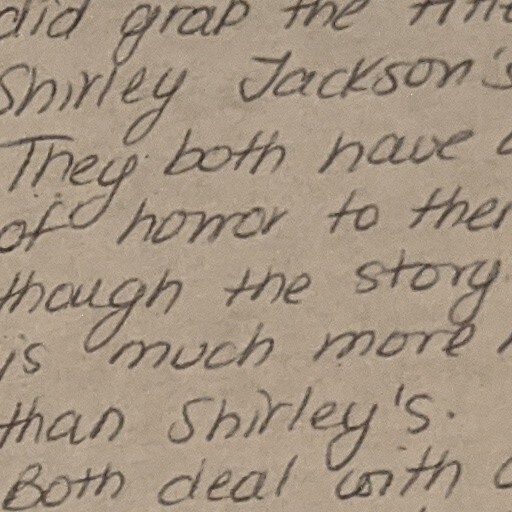 did grab the
Shirley Jackson's
They both have
of horror to
though the story
is much more
than Shirley's.
Both deal with